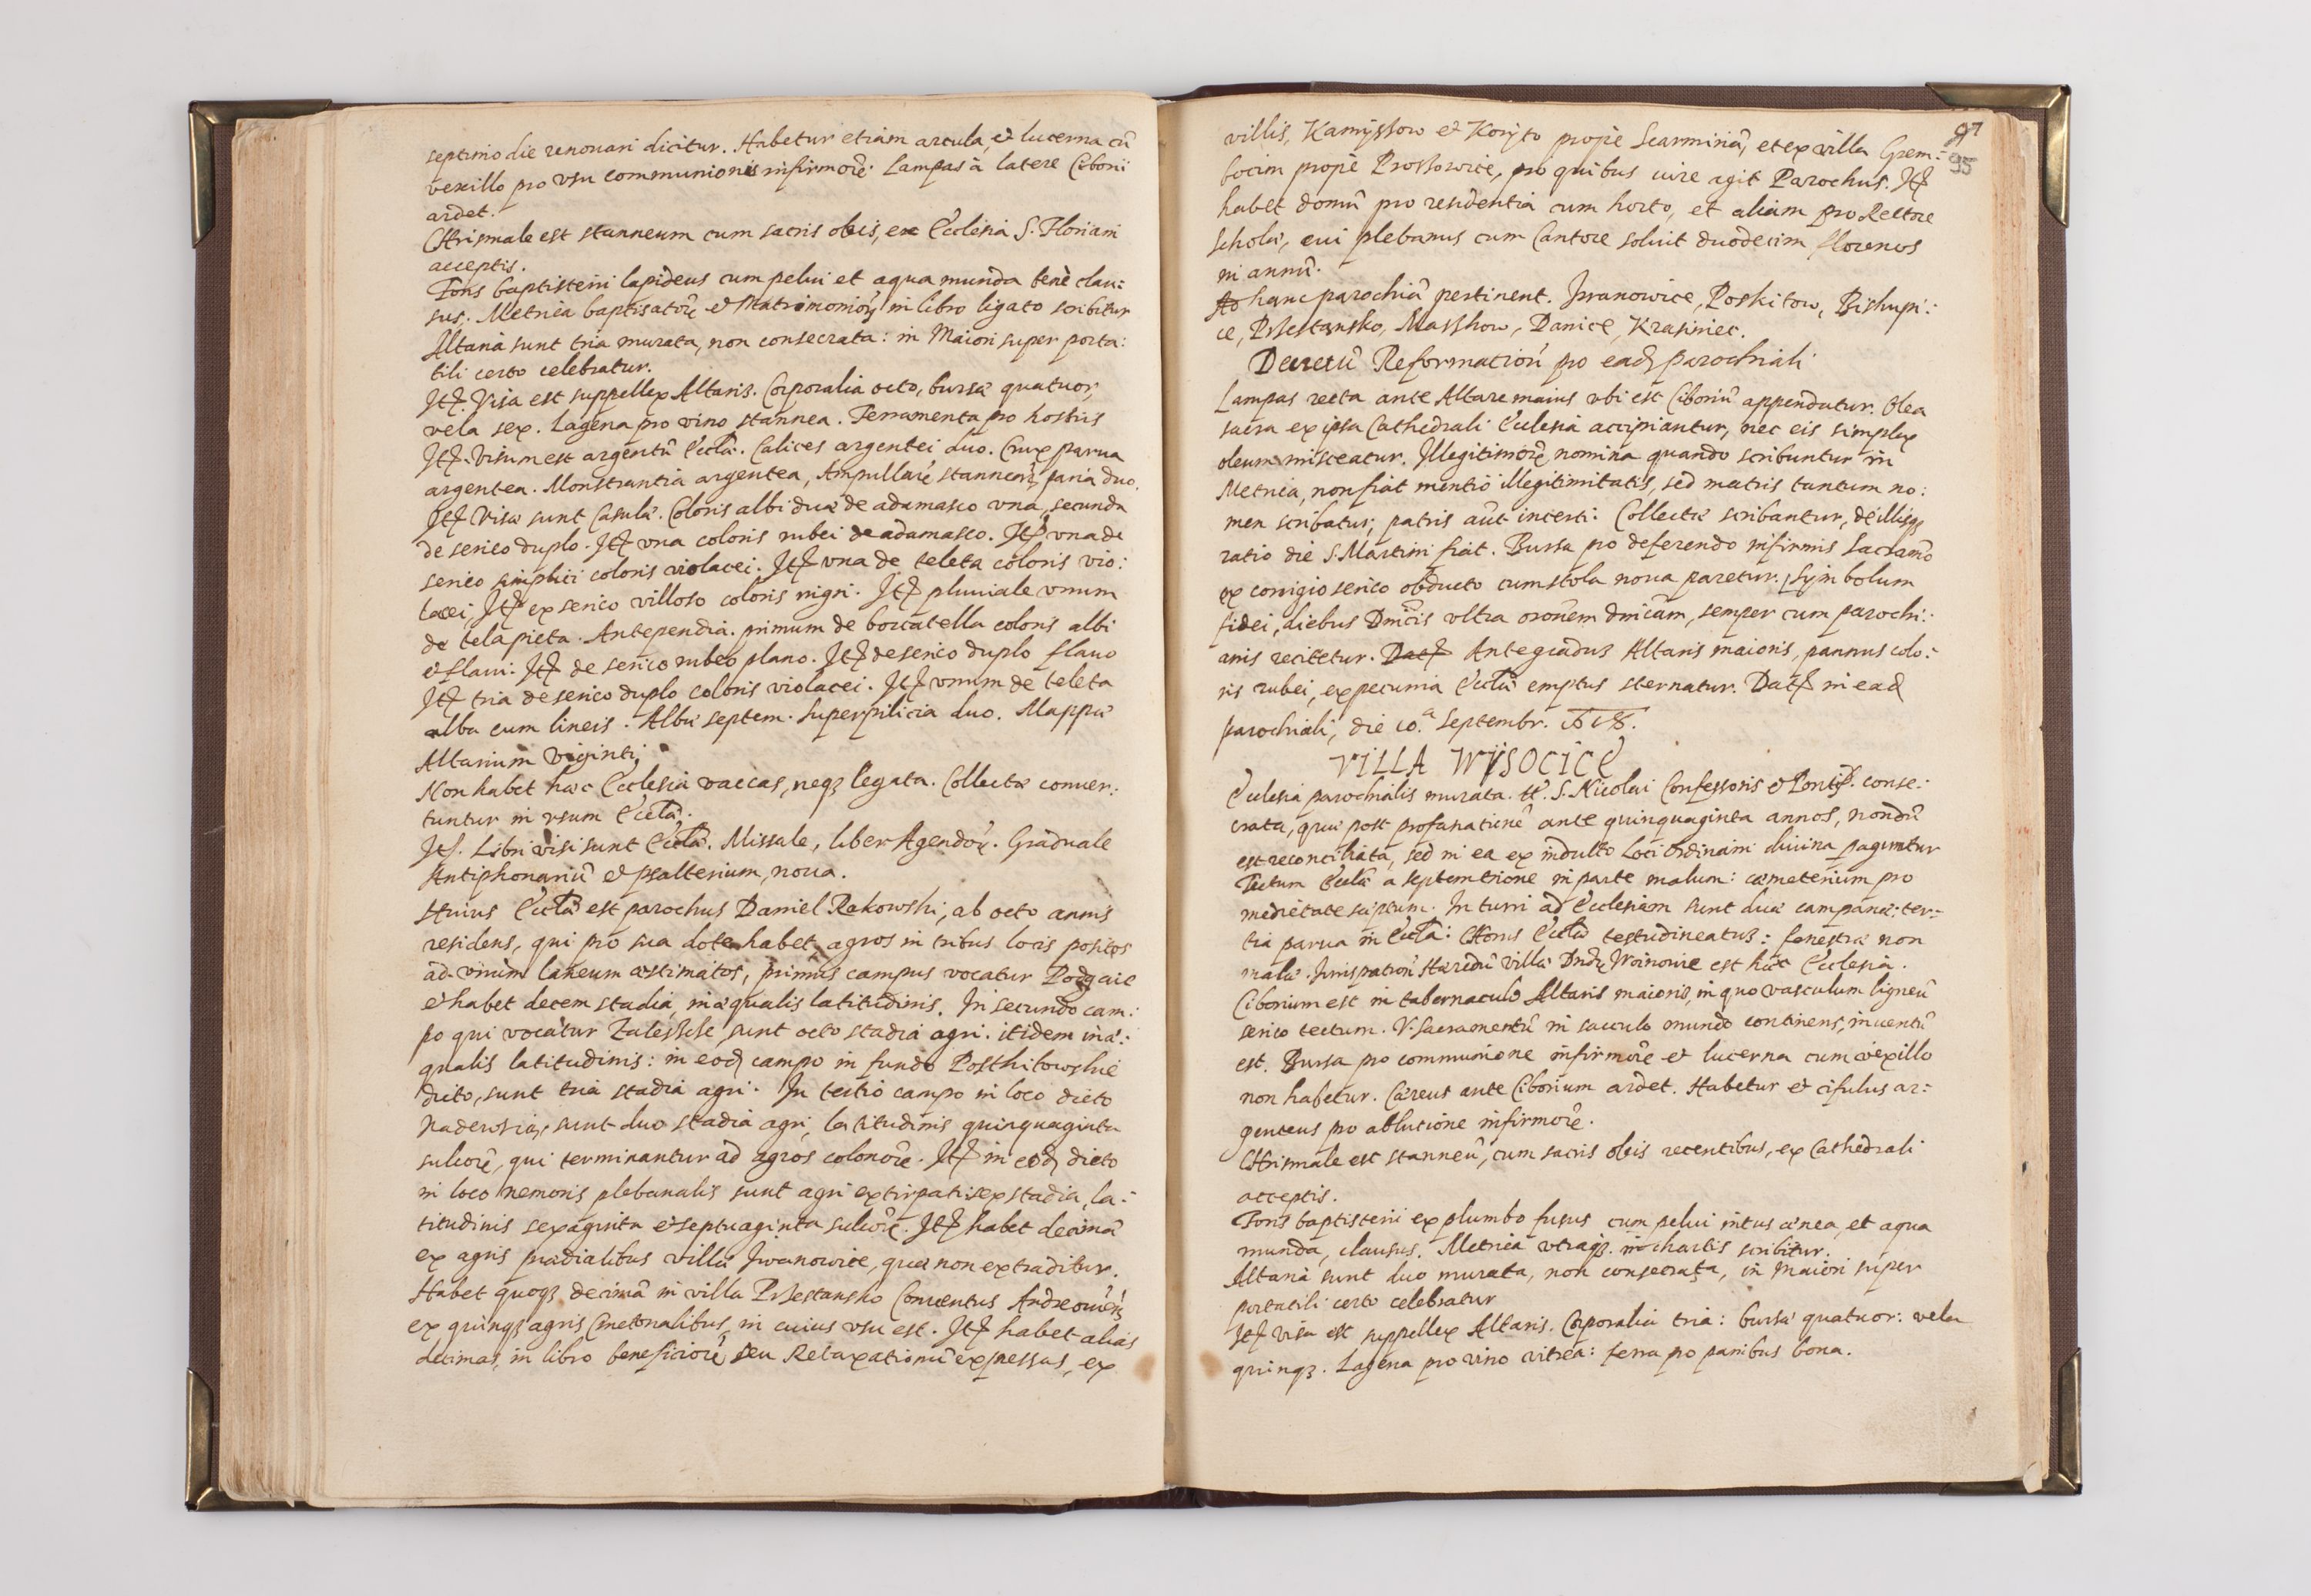 septimo die renouari dicitur. Habetur etiam arcula, et lucerna cũ
vexillo pro vsu communionis infirmorẽ. Lampas à latere Ciborij
ardet.
Chrismale est stanneum cum sacris oleis, ex Ecclesia S. Floriani
acceptis.
Fons baptisterii lapideus cum pelui et aqua munda benè clau:
sus. Metrica baptisatorẽ et Matrimoniorũ in libro ligato scribitur
Altaria sunt tria murata, non consecrata: in Maiori super porta:
tili certo celebratur.
Itẽ. Visa est suppellex Altaris. Corporalia octo, bursæ quatuor,
vela sex. Lagena pro vino stannea. Ferramenta pro hostiis
Itẽ. Visum est argentũ Ecclæ. Calices argentei duo. Crux parua
argentea. Monstrantia argentea, Ampullarẽ stannearẽ, paria duo.
Itẽ Visæ sunt Casulæ. Coloris albi duæ de adamasco vna, secunda
de serico duplo. Itẽ vna coloris rubei de adamasco. Itẽ vna de
serico simplici coloris violacei. Itẽ vna de teleta coloris vio:
lacei, Itẽ ex serico villoso coloris nigri. Itẽ pluuiale vnum
de tela picta. Antependia. primum de borcatella coloris albi
et flaui. Itẽ de serico rubeo plano. Itẽ de serico duplo flauo
Itẽ tria de serico duplo coloris violacei. Itẽ vnum de teleta
alba cum lineis. Albæ septem. Superpilicia duo. Mappæ
Altarium viginti.
Non habet hæc Ecclesia vaccas, neqʒ legata. Collectæ conuer:
tuntur in vsum Ecclæ.
Itẽ. Libri visi sunt Ecclæ. Missale, liber Agendorũ. Graduale
Antiphonariũ et psalterium, noua.
Huius Ecclæ est parochus Daniel Rakowski, ab octo annis
residens, qui pro sua dote habet agros in tribus locis positos
ad vnum laneum æstimatos, primus campus vocatur Podgaie
et habet decem stadia, inæqualis latitudinis. In secundo cam:
po qui vocatur Zalesshe sunt octo stadia agri. itidem inæ:
qualis latitudinis: in eodẽ campo in fundo Posthitowshie
dicto, sunt tria stadia agri. In tertio campo in loco dicto
Nadewsią, sunt duo stadia agri, latitudinis quinquaginta
sulcorẽ, qui terminantur ad agros colonorẽ. Itẽ in eodẽ dicto
in loco nemoris plebanalis sunt agri extirpati sex stadia, la:
titudinis sexaginta et septuaginta sulcorẽ. Itẽ habet decimã
ex agris prædialibus villæ Iwanowice, quæ non extraditur.
Habet quoqʒ decimã in villa Przestansko Conuentus Andreouieñ
ex quinqʒ agris Cmetonalibus, in cuius vsu est. Itẽ habet alias
decimas, in libro beneficiorẽ, seu Relaxationũ expressas, ex
97
95
villis, Kamysshow et Koryto propè Scarminiã, et ex villa Grem:
bocim propè Prossowice, pro quibus iure agit Parochus. Itẽ
habet domũ pro residentia cum horto, et aliam pro Rectore
Scholæ, cui plebanus cum Cantore soluit duodecim florenos
in annũ.
Ad hanc parochiã pertinent. Iwanowice, Poskitow, Biskupi:
ce, Przestansko, Masshow, Damice, Krasiniec.
Decretũ Reformationũ pro eadẽ parochiali
Lampas recta ante Altare maius vbi est Ciboriũ appendatur. Olea
sacra ex ipsa Cathedrali Ecclesia accipiantur, nec eis simplex
oleum misceatur. Illegitimorẽ nomina quando scribuntur in
Metrica, non fiat mentio illegitimitatis, sed matris tantum no:
men scribatur, patris aũt incerti. Collectæ scribantur, de illisqʒ
ratio die S. Martini fiat. Bursa pro deferendo infirmis Sacramẽto
ex corrigio serico obducto cum stola noua paretur. Symbolum
fidei, diebus Dnĩcis vltra orõnem dnĩcam, semper cum parochi:
anis recitetur. Datẽ Ante gradus Altaris maioris, pannus colo:
ris rubei, ex pecunia Ecclæ emptus sternatur. Datẽ in eadẽ
parochiali, die 10.ª Septembr. 1618.
VILLA WYSOCICE
Ecclesia parochialis murata. tt. S. Nicolai Confessoris et Pontif. conse:
crata, quæ post profanationẽ ante quinquaginta annos, nondũ
est reconciliata, sed in ea ex indulto Loci Ordinarii diuina paguntur
Tectum Ecclæ a septemtrione in parte malum: cæmeterium pro
medietate sæptum. In turri ad Ecclesiam sunt duæ campanæ: ter:
tia parua in Ecclã: Chorus Ecclæ testudineatus: fenestræ non
malæ. Iurispatroñ Hæredũ villæ Dndẽ Woinowic est hæc Ecclesia.
Ciborium est in tabernaculo Altaris maioris, in quo vasculum ligneũ
serico tectum. V. Sacramentũ in sacculo mundo continens, inuentũ
est. Bursa pro communione infirmorẽ et lucerna cum vexillo
non habetur. Cæreus ante Ciborium ardet. Habetur et cifulus ar:
genteus pro ablutione infirmorẽ.
Chrismale est stanneũ, cum sacris oleis recentibus, ex Cathedrali
acceptis.
Fons baptisterii ex plumbo fusus cum pelui intus ænea, et aqua
munda, clausus. Metrica vtraqʒ in chartis scribitur.
Altaria sunt duo murata, non consecrata, in maiori super
portatili certo celebratur
Itẽ visa est suppellex Altaris. Corporalia tria: bursæ quatuor: vela
quinqʒ. Lagena pro vino vitrea: ferra pro panibus bona.